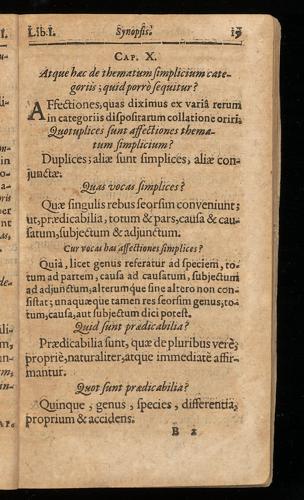 Lib. I. Synopsis. 15
CAP. X.
Atque hæc de thematum simplicium cate-
goriis; quid porrò sequitur?
Affectiones, quas diximus ex variâ rerum
in categoriis dispositarum collatione oriri.
Quotuplices sunt affectiones thema-
tum simplicium?
Duplices; aliæ sunt simplices, aliæ con-
junctæ.
Quas vocas simplices?
Quæ singulis rebus seorsim conveniunt;
ut, prædicabilia, totum & pars, causa & cau-
satum, subjectum & adjunctum.
Cur vocas has affectiones simplices?
Quia, licet genus referatur ad speciem, to-
tum ad partem, causa ad causatum, subjectum
ad adjunctum, alterumque sine altero non con-
sistat; unaquæque tamen res seorsim genus, to-
tum, causa, aut subjectum dici potest.
Quid sunt prædicabilia?
Prædicabilia sunt, quæ de pluribus verè,
propriè, naturaliter, atque immediatè affir-
mantur.
Quot sunt prædicabilia?
Quinque, genus, species, differentia,
proprium & accidens.
B 2